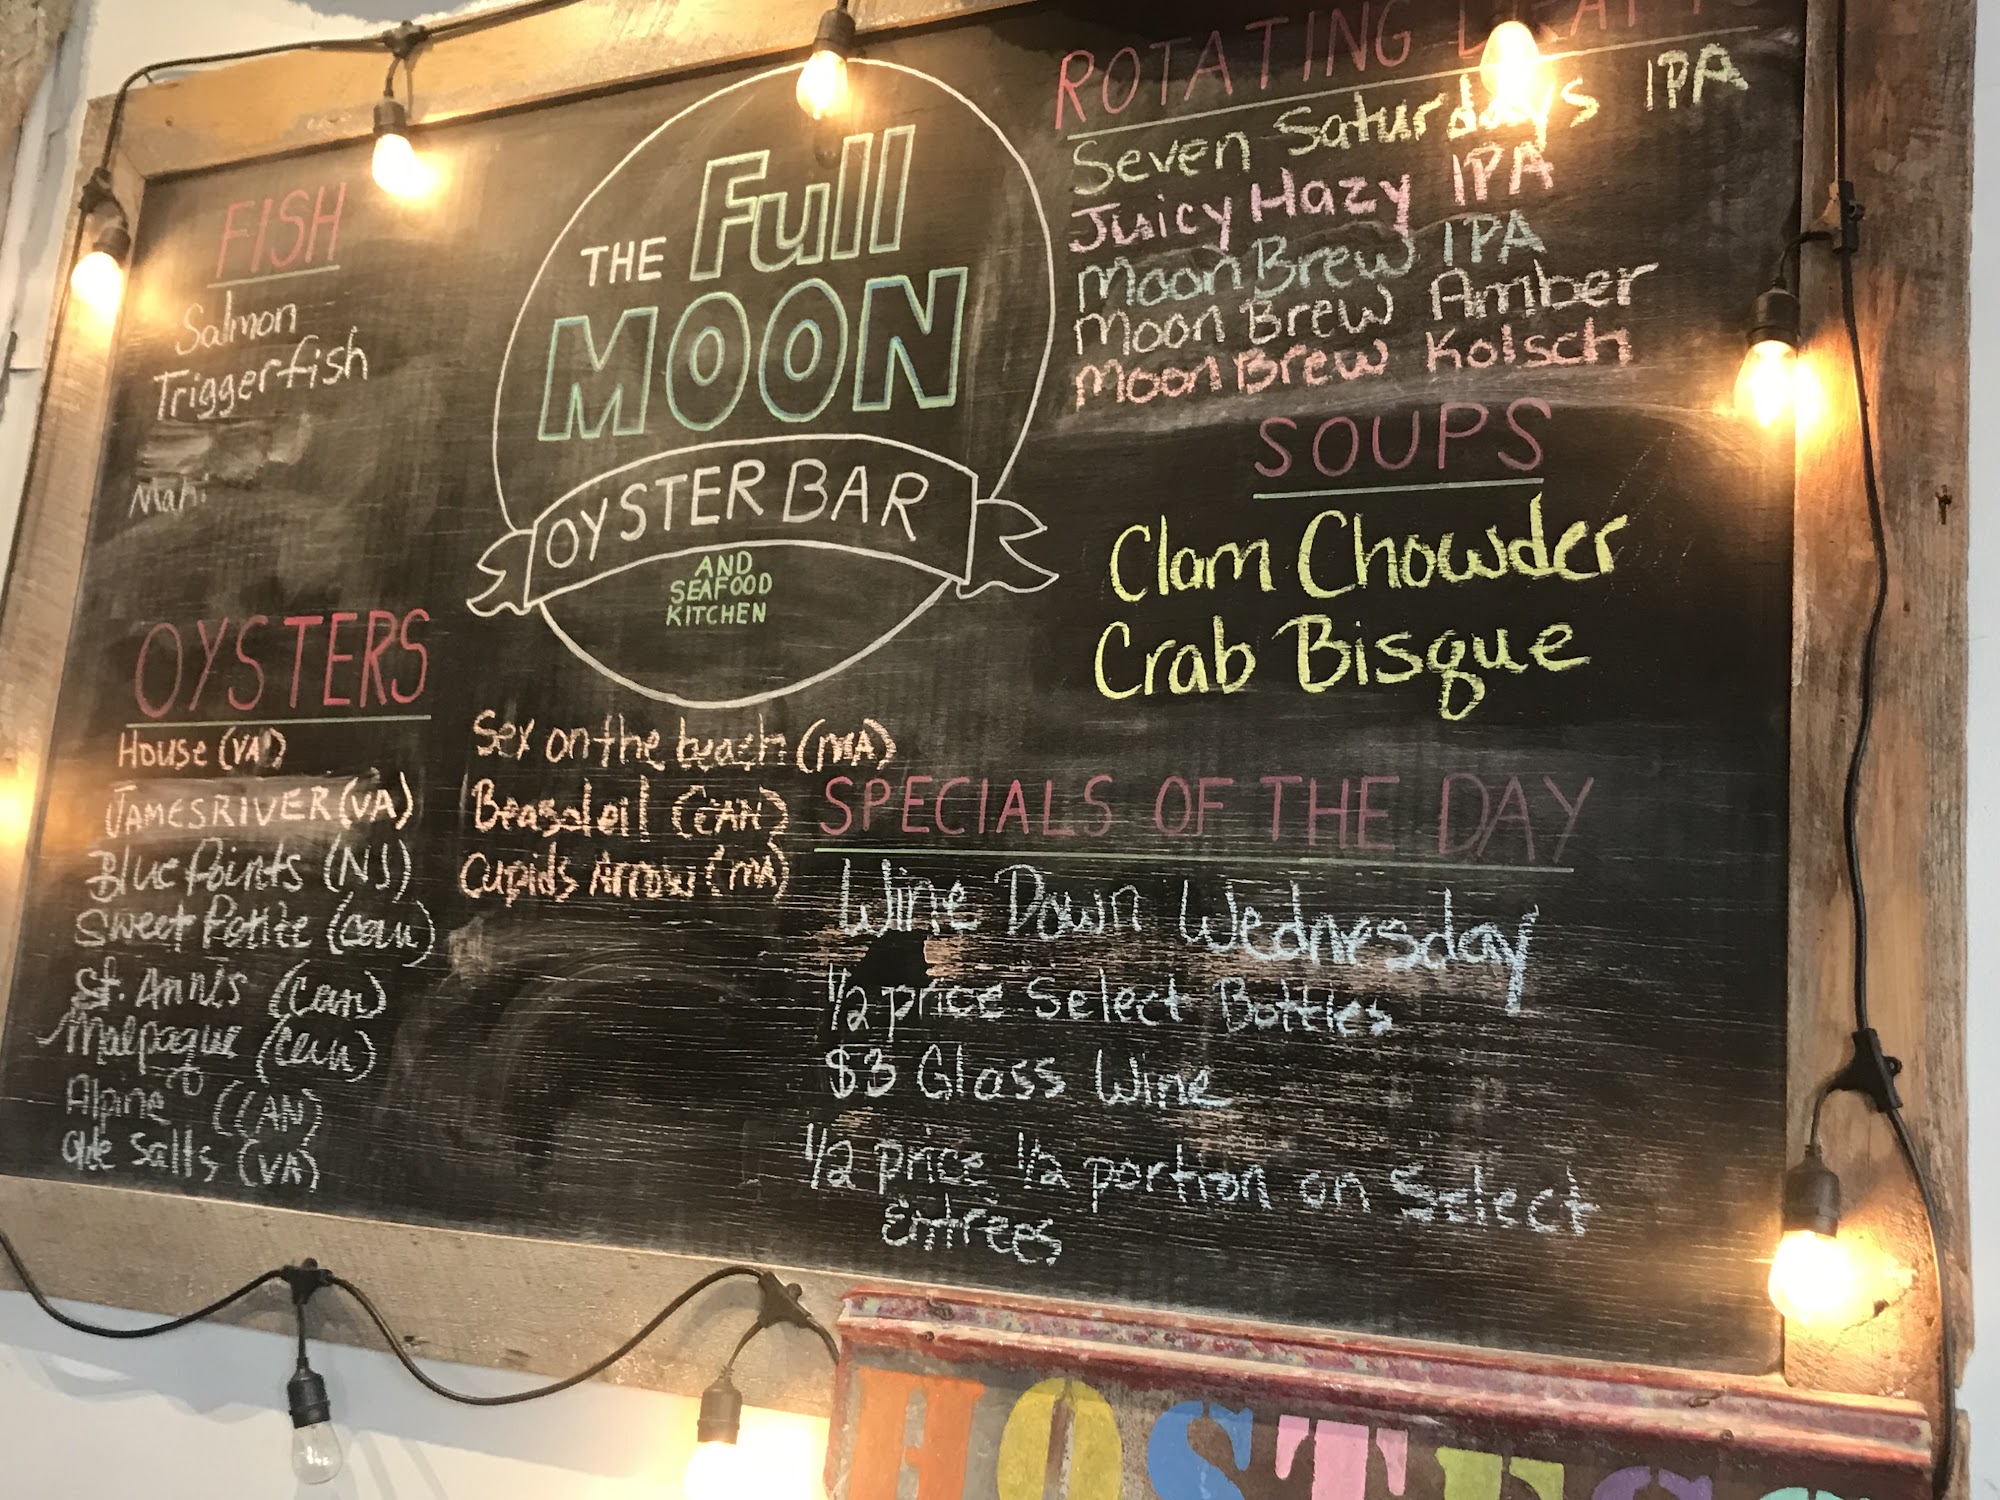 THE Full
MOON
OYSTER BAR
AND
SEAFOOD
KITCHEN
FISH
Salmon
Triggerfish
Mahi
OYSTERS
House (VA)
JAMES RIVER (VA)
Blue Points (NJ)
Sweet Petite (can)
St. Anns (can)
Malpaque (can)
Alpine (CAN)
Olde Salts (VA)
Sex on the beach (MA)
Beasoleil (CAN)
Cupids Arrow (MA)
ROTATING DRAFTS
Seven Saturdays IPA
Juicy Hazy IPA
Moon Brew IPA
Moon Brew Amber
Moon Brew Kolsch
SOUPS
Clam Chowder
Crab Bisque
SPECIALS OF THE DAY
Wine Down Wednesday
1/2 price Select Bottles
$3 Glass Wine
1/2 price 1/2 portion on Select
Entrees
HOSTESS